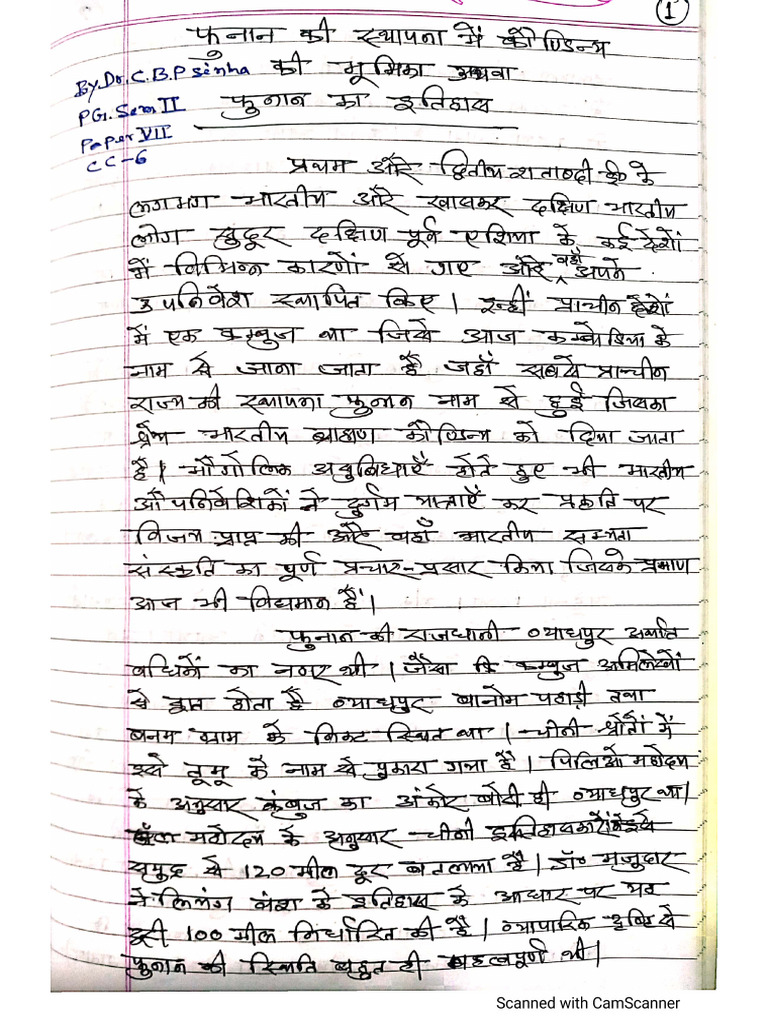 1
फुनान की स्थापना में कौण्डिन्य
By Dr. C.B.P Sinha की भूमिका अथवा
PG. Sem II फुनान का इतिहास
Paper VII
CC-6
प्रथम और द्वितीय शताब्दी ई० के
लगभग भारतीय और खासकर दक्षिण भारतीय
लोग सुदूर दक्षिण पूर्व एशिया के कई देशों
में विभिन्न कारणों से गए और वहाँ अपने
उपनिवेश स्थापित किए। इन्हीं प्राचीन देशों
में एक कम्बुज था जिसे आज कम्बोडिया के
नाम से जाना जाता है जहाँ सबसे प्राचीन
राज्य की स्थापना फुनान नाम से हुई जिसका
श्रेय भारतीय ब्राह्मण कौण्डिन्य को दिया जाता
है। भौगोलिक असुविधाएँ होते हुए भी भारतीय
औपनिवेशिकों ने दुर्गम यात्राएँ कर प्रकृति पर
विजय प्राप्त की और वहाँ भारतीय सभ्यता
संस्कृति का पूर्ण प्रचार-प्रसार किया जिसके प्रमाण
आज भी विद्यमान हैं।
फुनान की राजधानी व्याधपुर अर्थात
बधिकों का नगर थी। जैसा कि कम्बुज अभिलेखों
से ज्ञात होता है व्याधपुर बानोम पहाड़ी तथा
बनम ग्राम के निकट स्थित था। चीनी श्रोतों में
इसे तूमू के नाम से पुकारा गया है। पिलिओ महोदय
के अनुसार कंबुज का अंकोर बोरी ही व्याधपुर था।
महोदय के अनुसार चीनी इतिहासकारों ने इसे
समुद्र से 120 मील दूर बतलाया है। डॉ० मजुदार
ने लिलंग वंश के इतिहास के आधार पर यह
दूरी 100 मील निर्धारित की है। व्यापारिक दृष्टि से
फुनान की स्थिति बहुत ही महत्वपूर्ण थी।
Scanned with CamScanner